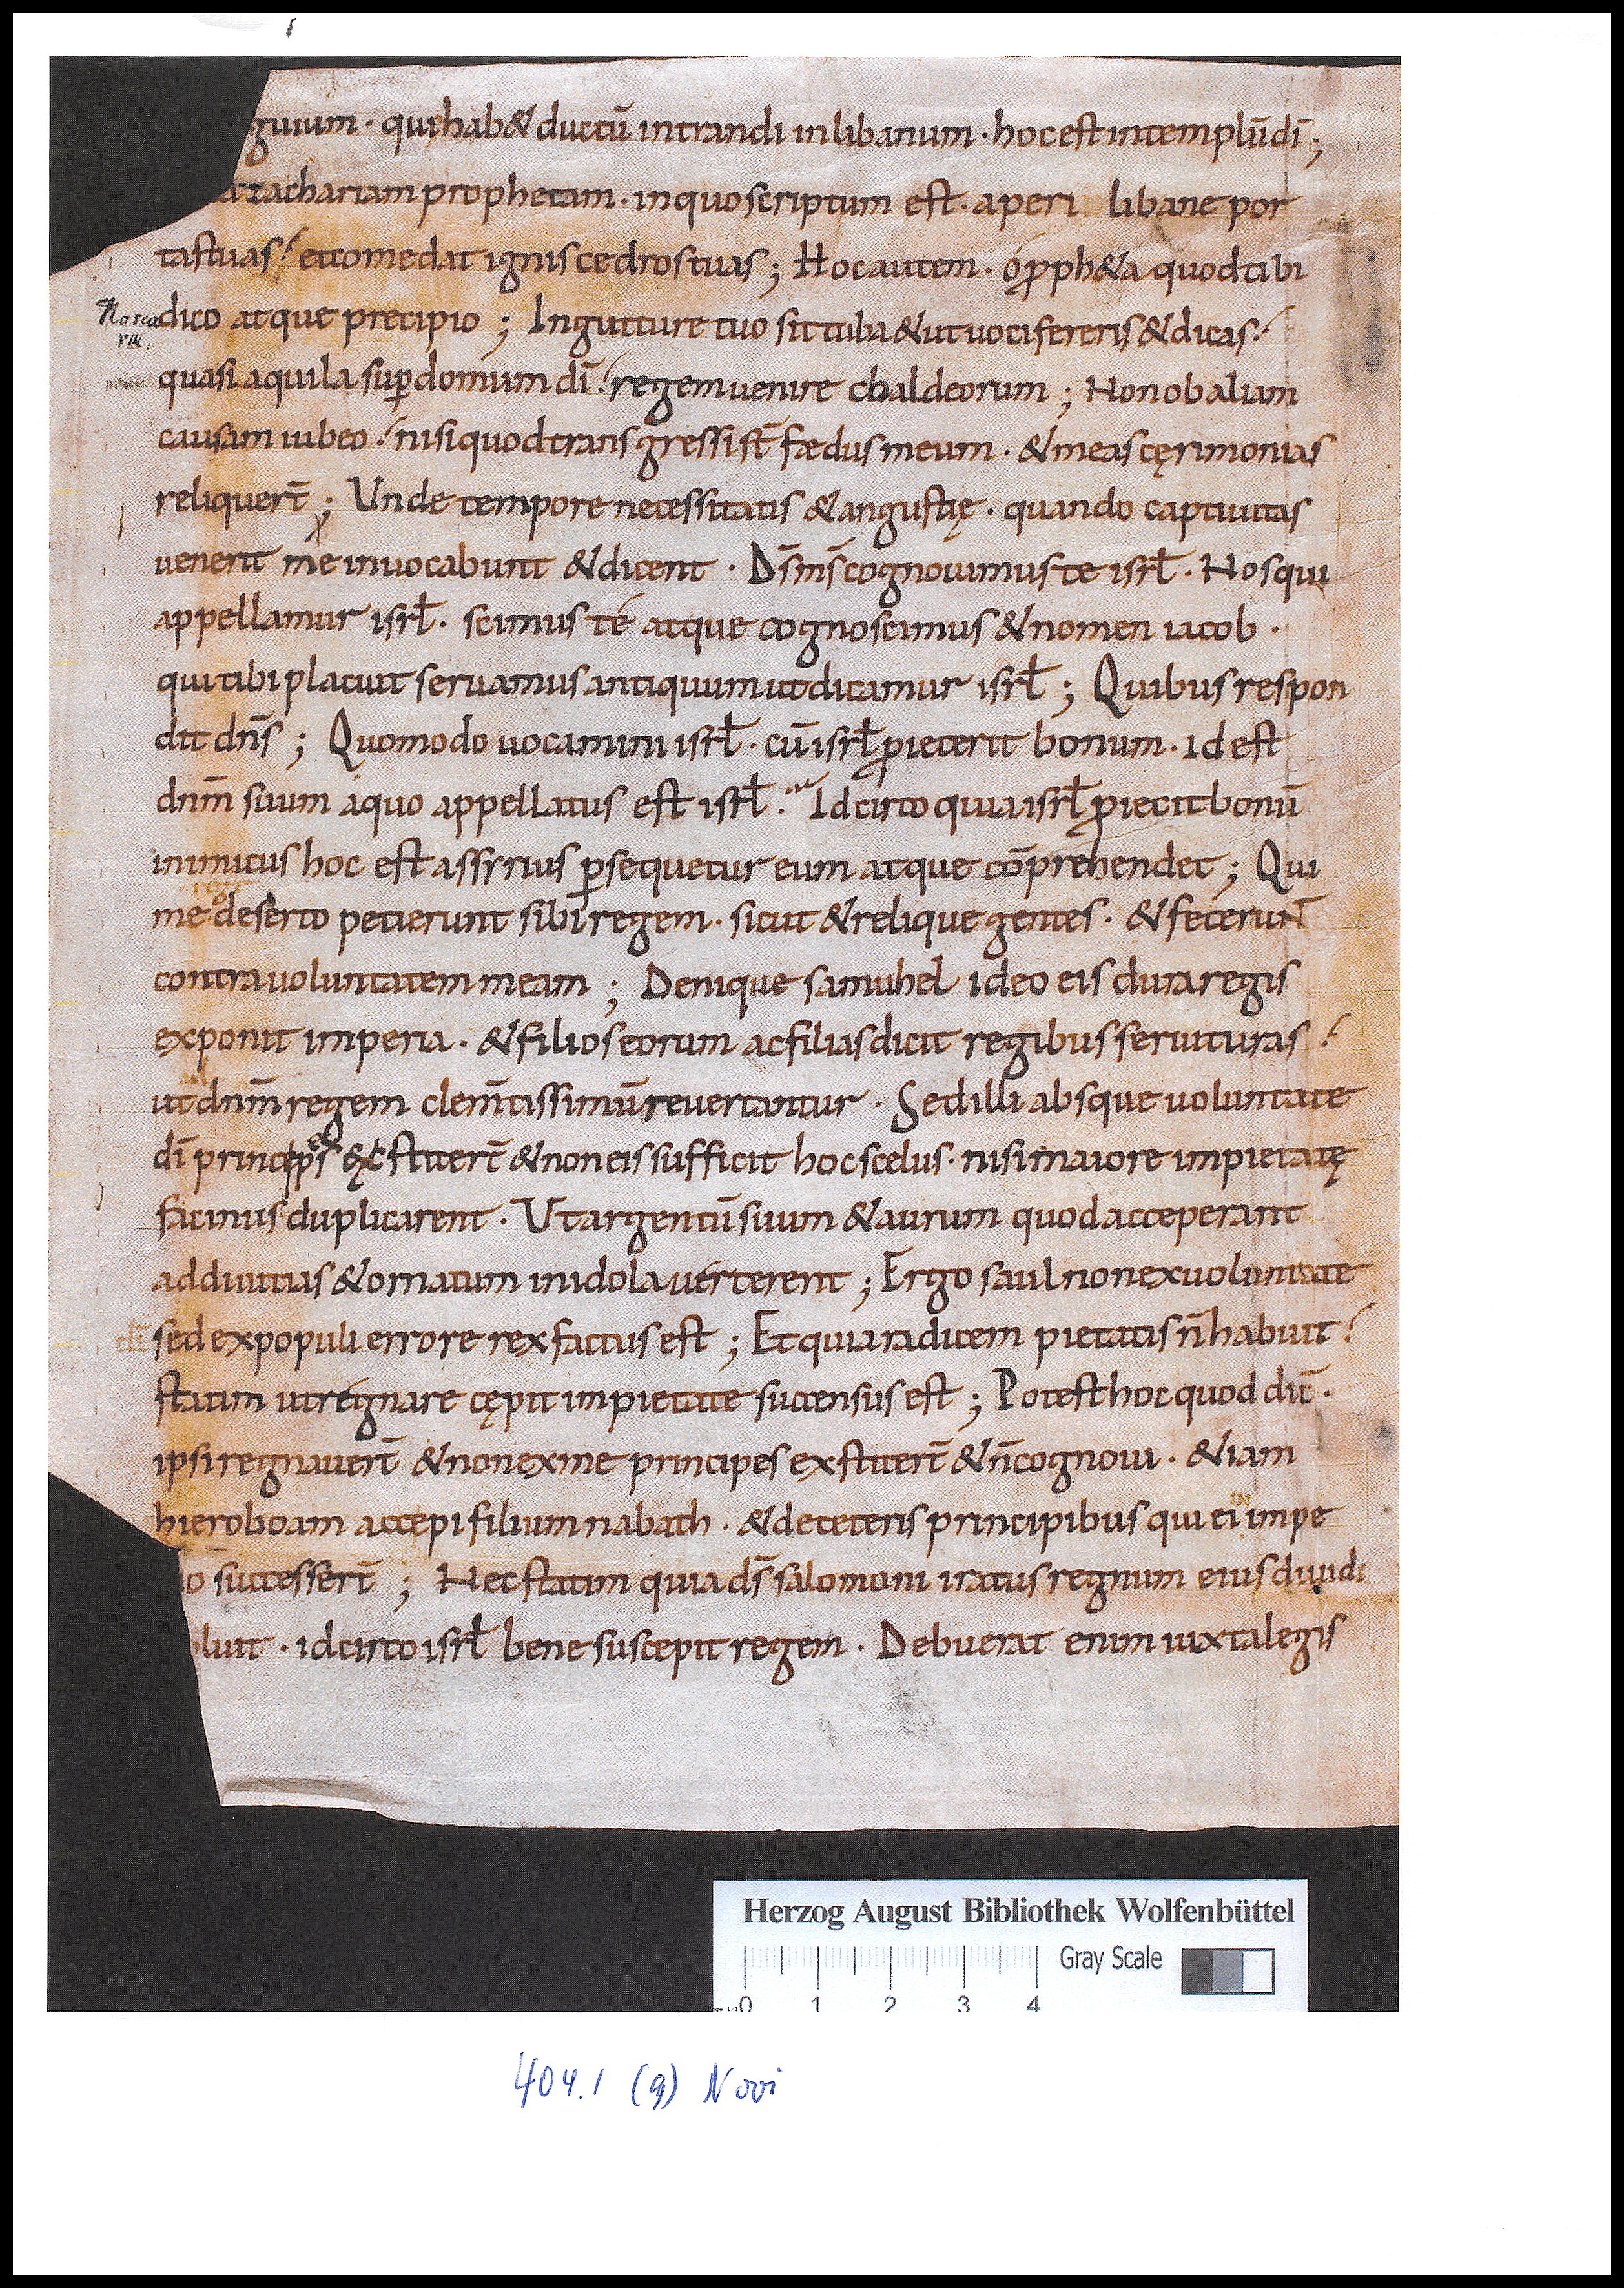 guium · qui hab& ductū intrandi in libanum · hoc est in templū dī ;
zachariam prophetam · in quo scriptum est · aperi libane por
tas tuas ⸵ et comedat ignis cedros tuas ; Hoc autem · ó ꝓph&a quod tibi
dico atque precipio ; In gutture tuo sit tuba & ut uocifereris & dicas ⸵
quasi aquila suꝑ domum dī ⸵ regem uenire chaldeorum ; Non ob aliam
causam iubeo ⸵ nisi quod transgressi sт̄ fædus meum · & meas cęrimonias
reliquerт̄ ; Unde tempore necessitatis & angustię · quando captiuitas
uenerit me inuocabunt & dicent · Ds̄ ms̄ cognouimus te isrł · Nos qui
appellamur isrł · scimus té atque cognoscimus & nomen iacob ·
qui tibi placuit seruamus antiquum ut dicamur isrł ; Quibus respon
dit dn̄s ; Quomodo uocamini isrł · cū isrł ꝓiecerit bonum · id est
dnm̄ suum a quo appellatus est isrł · Idcirco quia isrł ꝓiecit bonū
inimicus hoc est assyrius ꝑsequetur eum atque cōprehendet ; Qui
me deserto petierunt sibi regem · sicut & relique gentes · & fecerunt
contra uoluntatem meam ; Denique samuhel ideo eis dura regis
exponit imperia · & filios eorum ac filias dicit regibus seruituras ⸵
ut dnm̄ regem clem̄tissimū reuertantur · Sed illi absque uoluntate
dī principes exstiterт̄ & non eis sufficit hoc scelus · nisi maiore impietatę
facinus duplicarent · Ut argentū suum & aurum quod acceperant
ad diuitias & ornatum in idola uérterent ; Ergo saul non ex uoluntate
sed ex populi errore rex factus est ; Et quia radicem pietatis n̄ habuit ⸵
statim ut regnare cępit impietate succensus est ; Potest hoc quod dic̄ ·
ipsi regnauerт̄ & non ex me principes exstiterт̄ & n̄ cognoui · & iam
hieroboam accepi filium nabath · & de ceteris principibus qui ei in impe
o successerт̄ ; Nec statim quia ds̄ salomoni iratus regnum eius diuidi
luit · idcirco isrł bene suscepit regem · Debuerat enim iuxta legis
Herzog August Bibliothek Wolfenbüttel
Gray Scale
0 1 2 3 4
404.1 (9) Novi